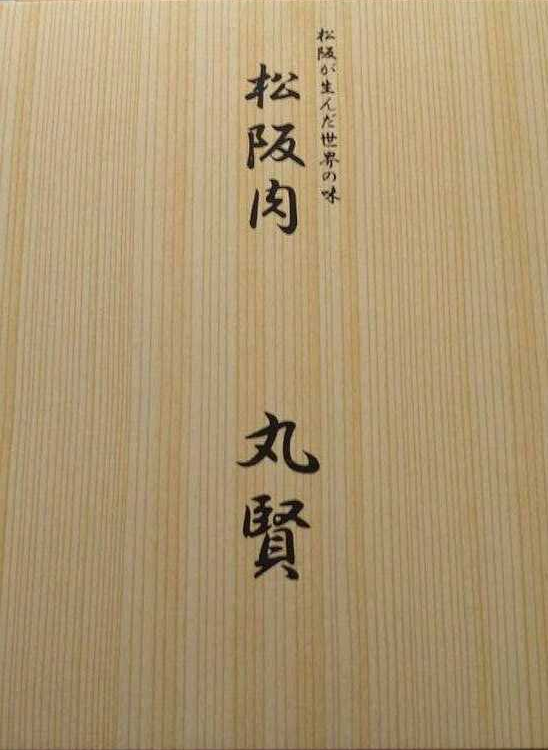 松阪が生んだ世界の味
松阪肉 丸賢